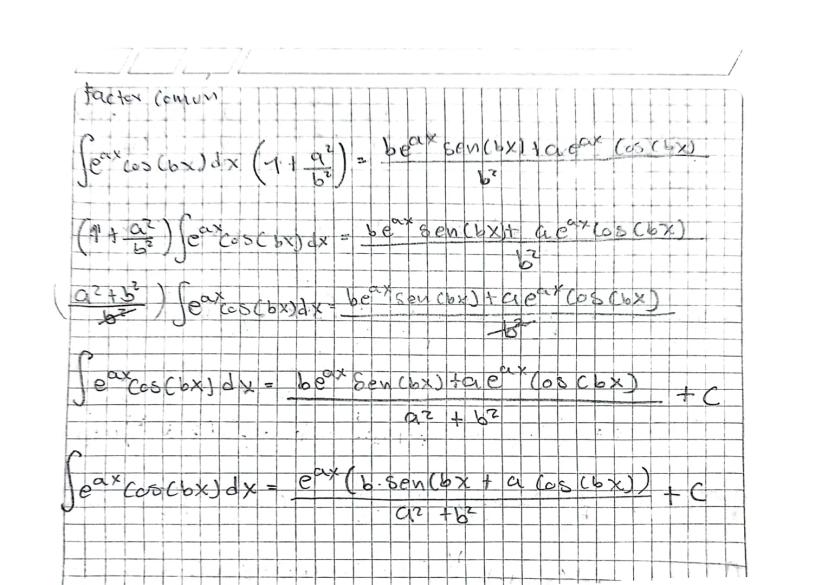 Factor comun
∫e^{ax} cos(bx)dx (1 + a²/b²) = (be^{ax} sen(bx) + ae^{ax} cos(bx))/b²
(1 + a²/b²) ∫e^{ax} cos(bx)dx = (be^{ax} sen(bx) + ae^{ax} cos(bx))/b²
((a² + b²)/b²) ∫e^{ax} cos(bx)dx = (be^{ax} sen(bx) + ae^{ax} cos(bx))/b²
∫e^{ax} cos(bx)dx = (be^{ax} sen(bx) + ae^{ax} cos(bx))/(a² + b²) + C
∫e^{ax} cos(bx)dx = e^{ax}(b·sen(bx + a cos(bx))/(a² + b²) + C